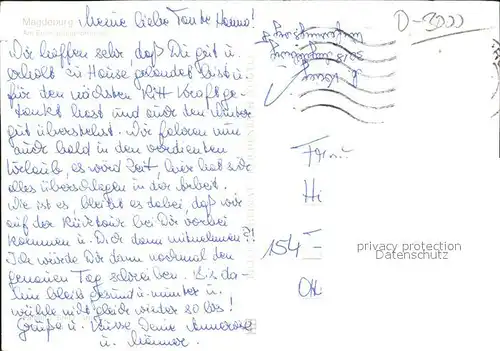 Magdeburg
Meine liebe Tante Hanna!
Wir hoffen sehr, daß Du gut u.
erholt zu Hause gelandet bist u.
für den nächsten Ritt Kraft ge-
tankt hast und auch den Winter
gut überstehst. Wir fahren nun
auch bald in den verdienten
Urlaub, es wird Zeit, hier hat sich
alles überschlagen in der Arbeit.
Wie ist es, bleibt es dabei, daß wir
auf der Rücktour bei Dir vorbei
kommen u. Dich dann mitnehmen?!
Ich würde Dir dann nochmal den
genauen Tag schreiben. Bis da-
hin bleib gesund u. munter u.
wühle nicht gleich wieder so los!
Grüße u. Küsse Deine Annerose
u. Männer.
D-3000
Frau
Hi
154-
privacy protection
Datenschutz